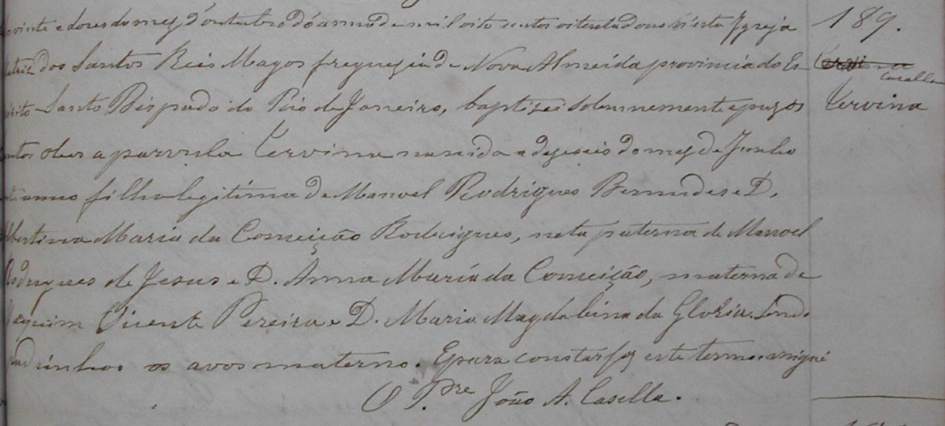 vinte e dous do mez d'outubro do anno de mil oito centos oitenta dous n'esta Igreja
Matriz dos Santos Reis Magos freguezia de Nova Almeida provincia do Es-
pirito Santo Bispado do Rio de Janeiro, baptizei solemnemente e puz os
Santos oleos a parvula Cervina nascida a dezeseis do mez de Junho
anno filha legitima de Manoel Rodrigues Bermudes e D.
Albertina Maria da Conceição Rodrigues, neta paterna de Manoel
Rodrigues de Jesus e D. Anna Maria da Conceição, materna de
Joaquim Vicente Pereira e D. Maria Magdalena da Gloria. Sendo
Padrinhos os avos materno. E para constar fiz este termo e asigné
O P.re João A. Casella.
189.
Casella
Cervina